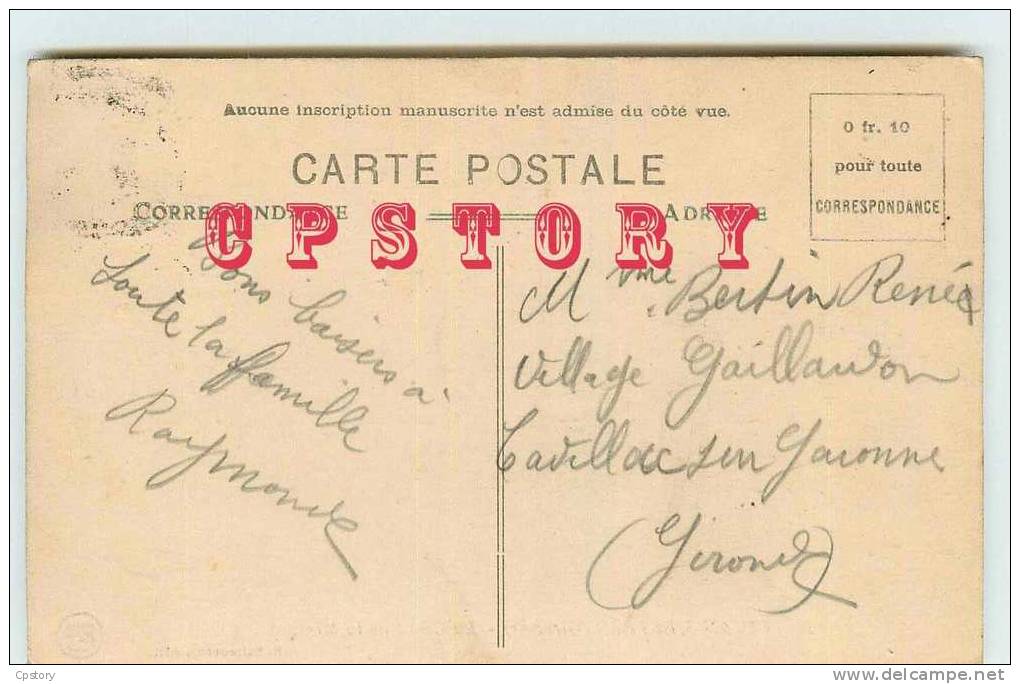 Aucune inscription manuscrite n'est admise du côté vue.
CARTE POSTALE
0 fr. 10
pour toute
CORRESPONDANCE
CORRESPONDANCE
ADRESSE
CPSTORY
Bons baisers à
toute la famille
Raymonde
Mme Bertin Renée
Village Gaillardon
Cadillac sur Garonne
(Gironde)
Cpstory
delcampe.net